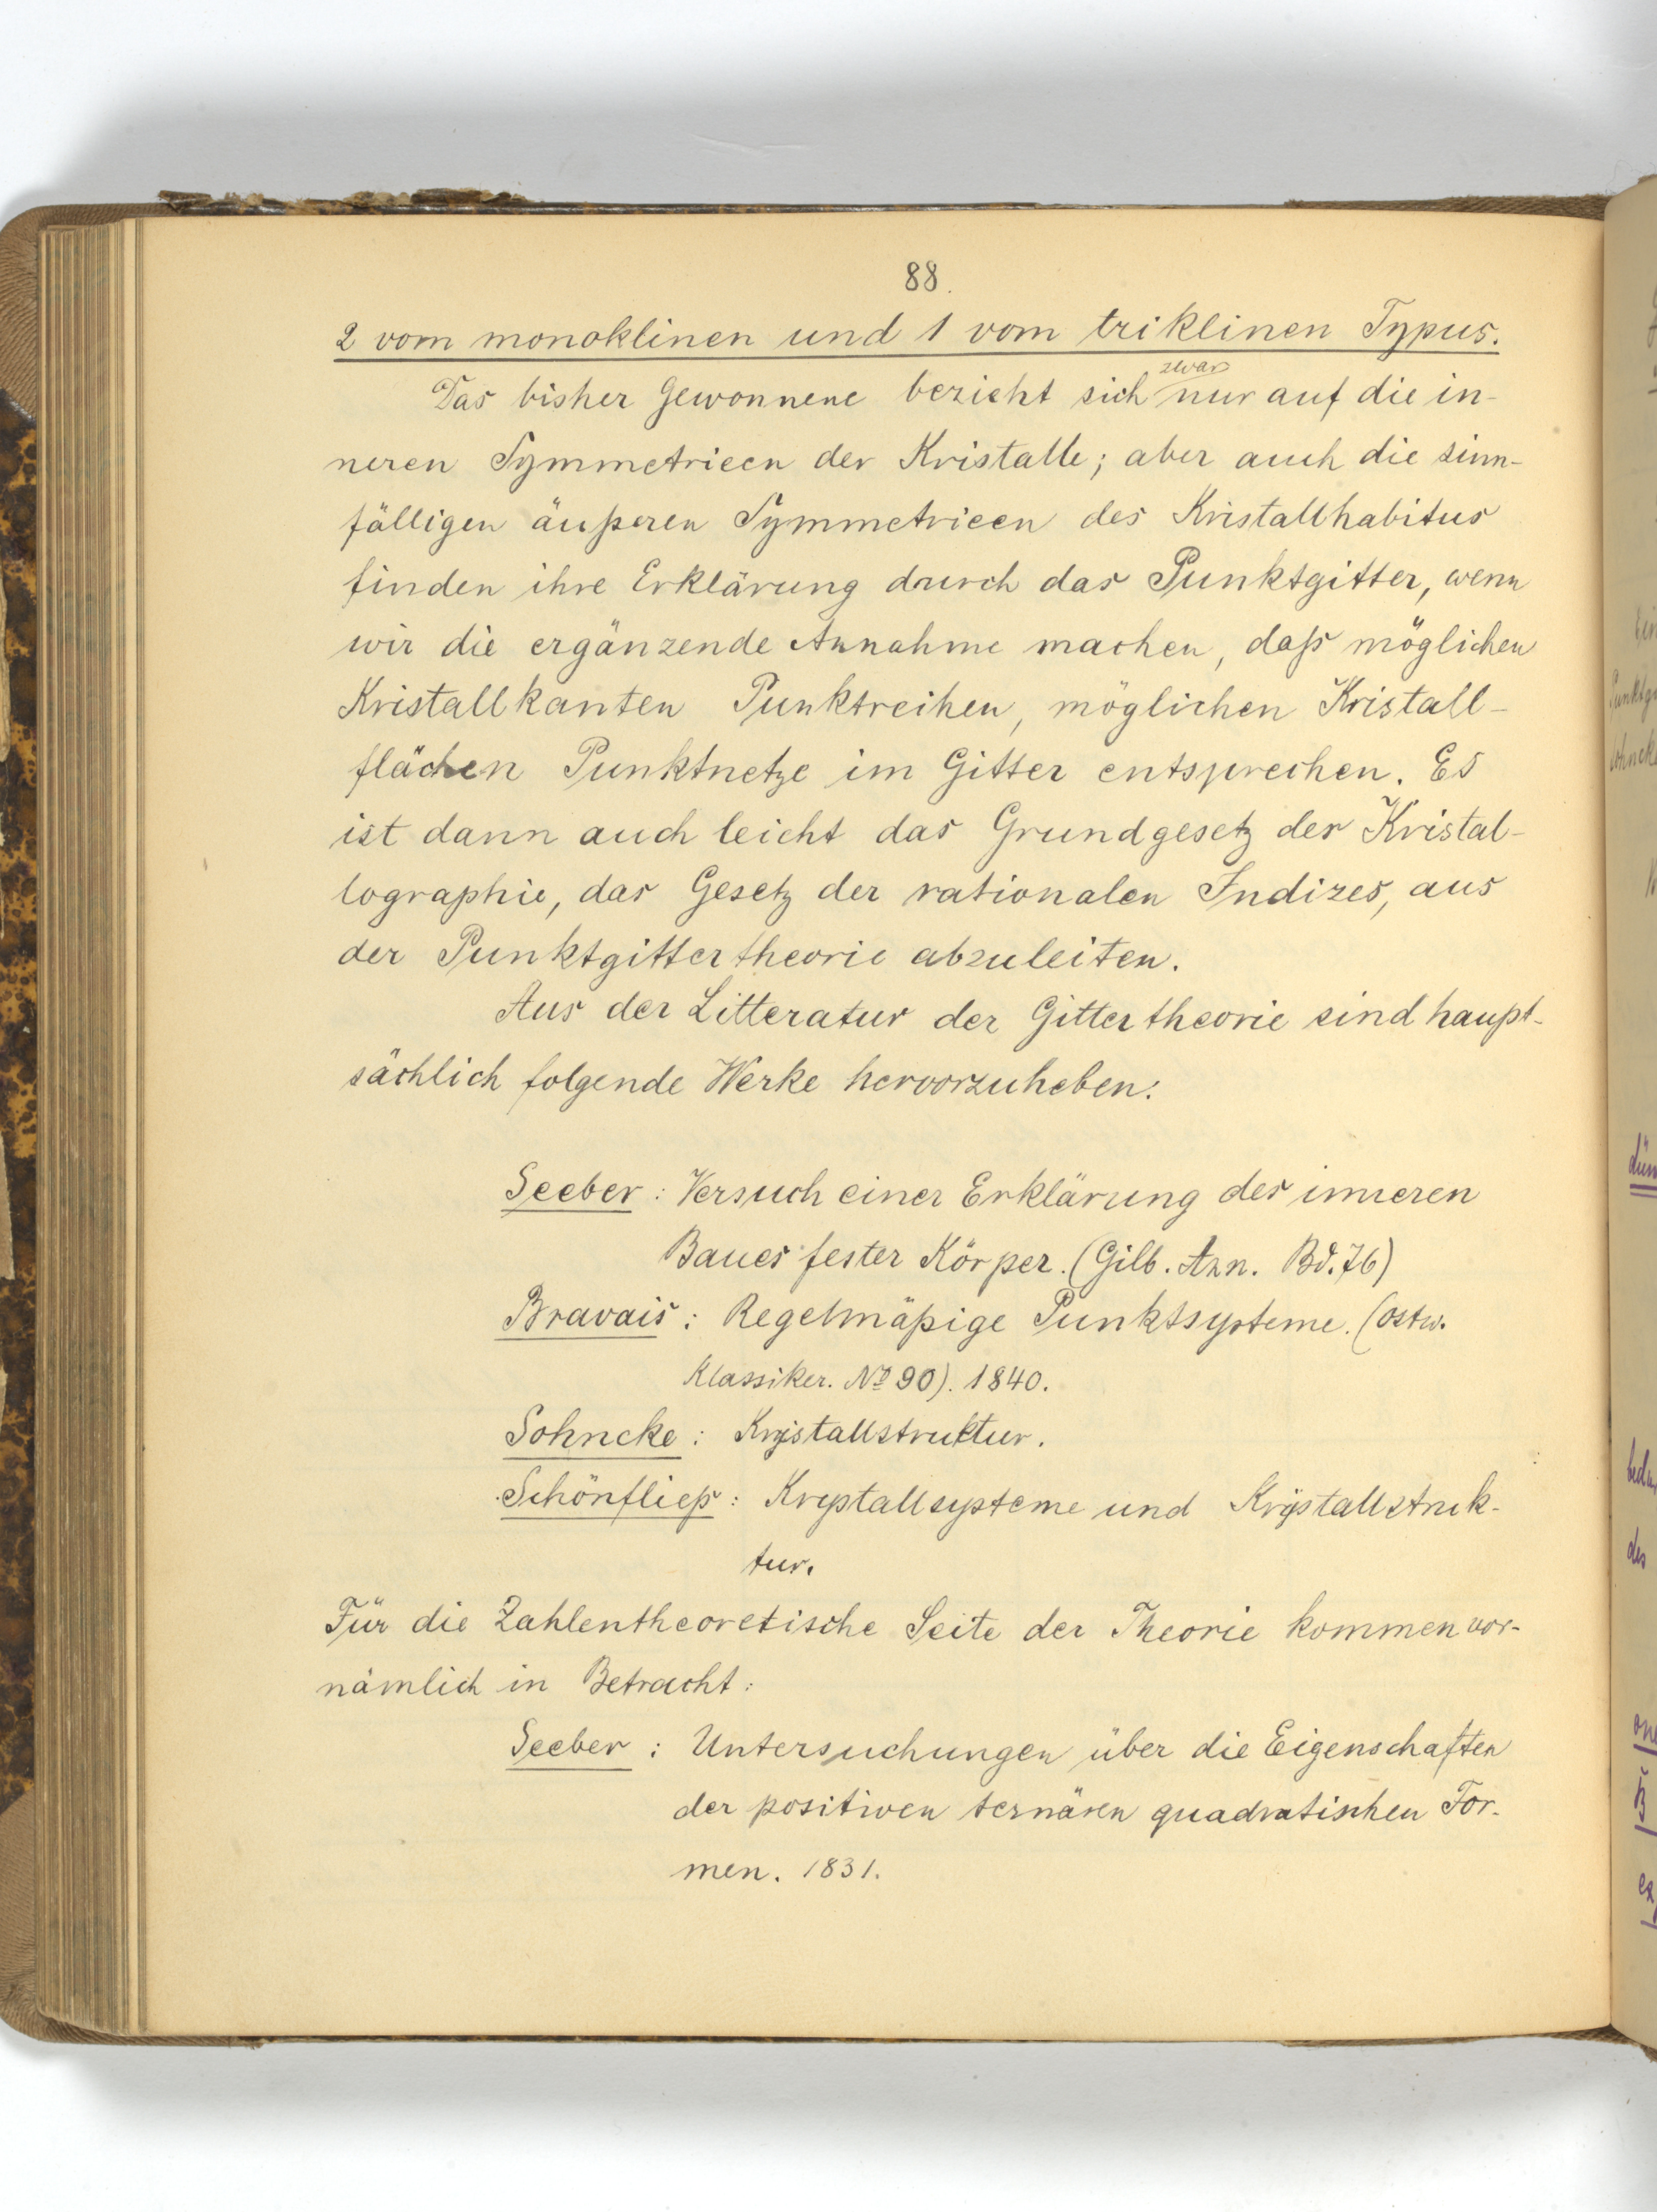 88.
2 vom monoklinen und 1 vom triklinen Typus.
zwar
Das bisher Gewonnene bezieht sich nur auf die in-
neren Symmetrieen der Kristalle; aber auch die sinn-
fälligen äußeren Symmetrieen des Kristallhabitus
finden ihre Erklärung durch das Punktgitter, wenn
wir die ergänzende Annahme machen, daß möglichen
Kristallkanten Punktreihen, möglichen Kristall-
flächen Punktnetze im Gitter entsprechen. Es
ist dann auch leicht das Grundgesetz der Kristal-
lographie, das Gesetz der rationalen Indizes, aus
der Punktgittertheorie abzuleiten.
Aus der Litteratur der Gittertheorie sind haupt-
sächlich folgende Werke hervorzuheben:
Seeber: Versuch einer Erklärung des inneren
Baues fester Körper. (Gilb. Ann. Bd. 76)
Bravais: Regelmäßige Punktsysteme. (Ostw.
Klassiker. No 90). 1840.
Sohncke: Krystallstruktur.
Schönfließ: Krystallsysteme und Krystallstruk-
tur.
Für die Zahlentheoretische Seite der Theorie kommen vor-
nämlich in Betracht:
Seeber: Untersuchungen über die Eigenschaften
der positiven ternären quadratischen For-
men. 1831.